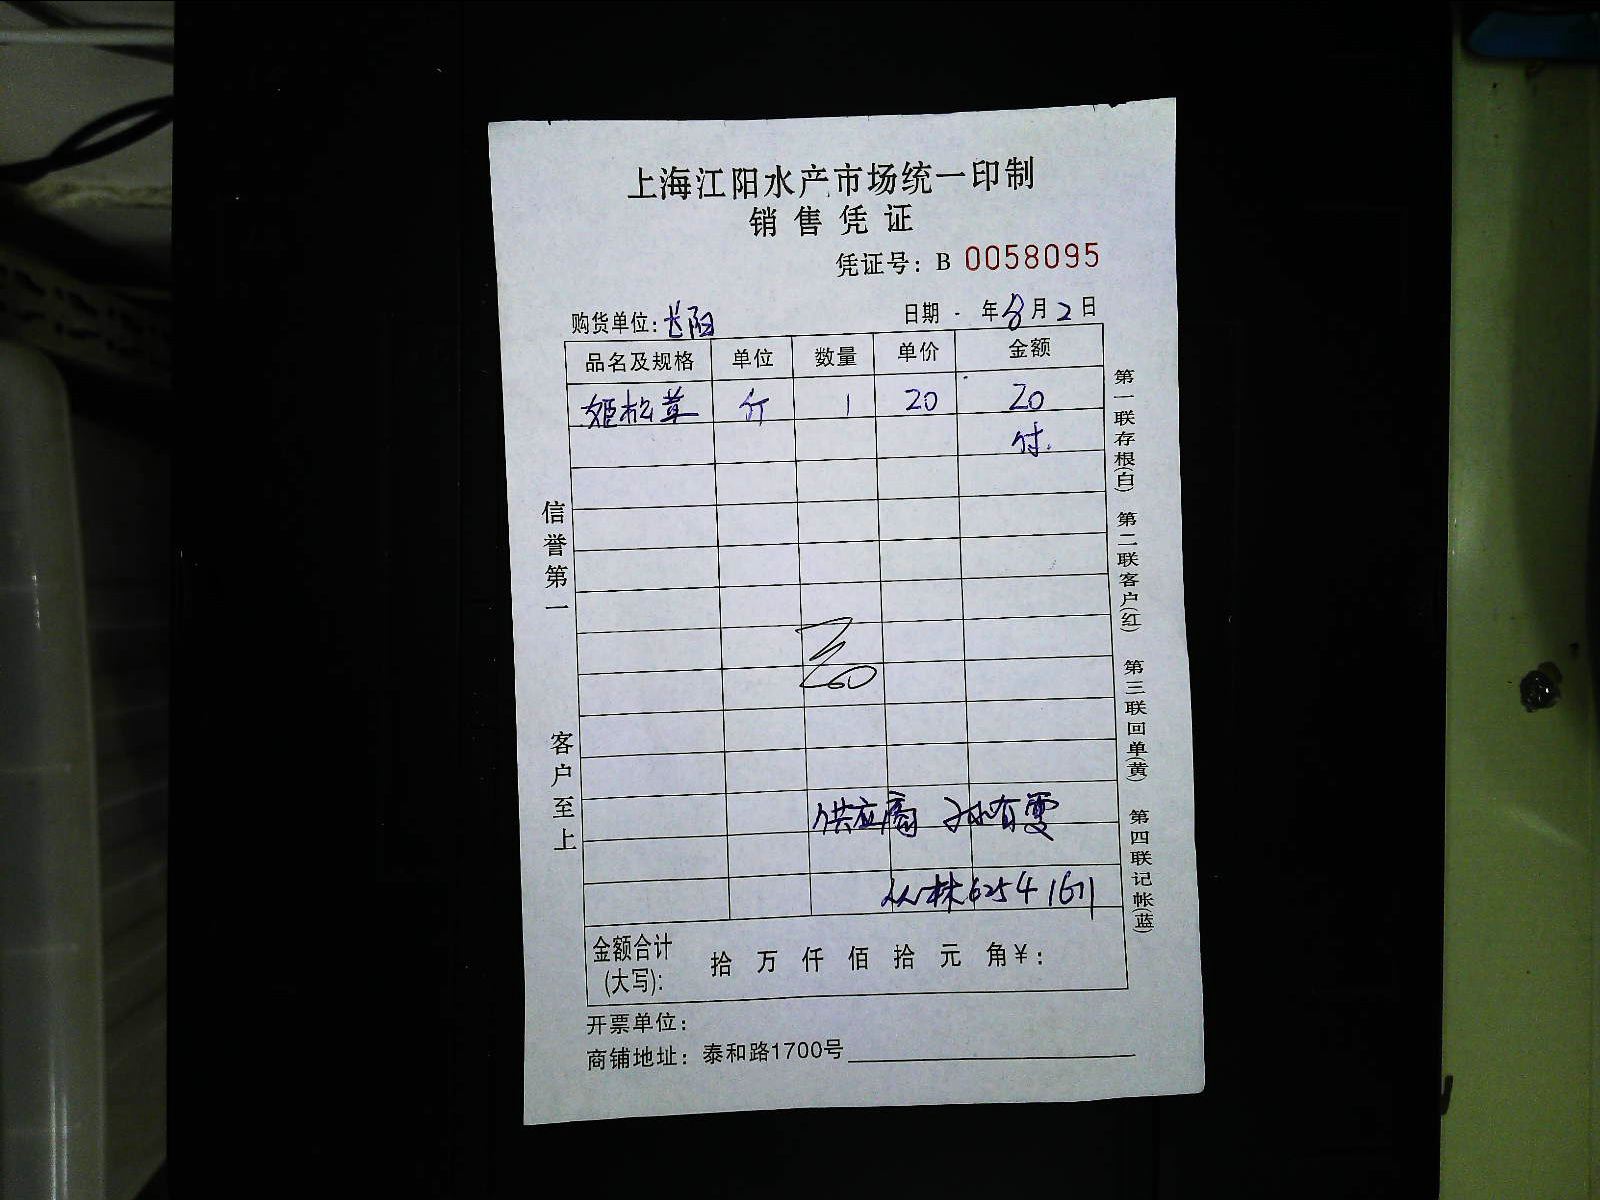 上海江阳水产市场统一印制
销售凭证
凭证号：B 0058095
购货单位：长阳 日期 年8月2日
品名及规格 单位 数量 单价 金额
姬松茸 斤 1 20 20
付.
供应商 孙有雯
丛林 62541611
金额合计(大写)： 拾 万 仟 佰 拾 元 角 ¥：
开票单位：
商铺地址：泰和路1700号
信誉第一 客户至上
第一联存根(白) 第二联客户(红) 第三联回单(黄) 第四联记帐(蓝)